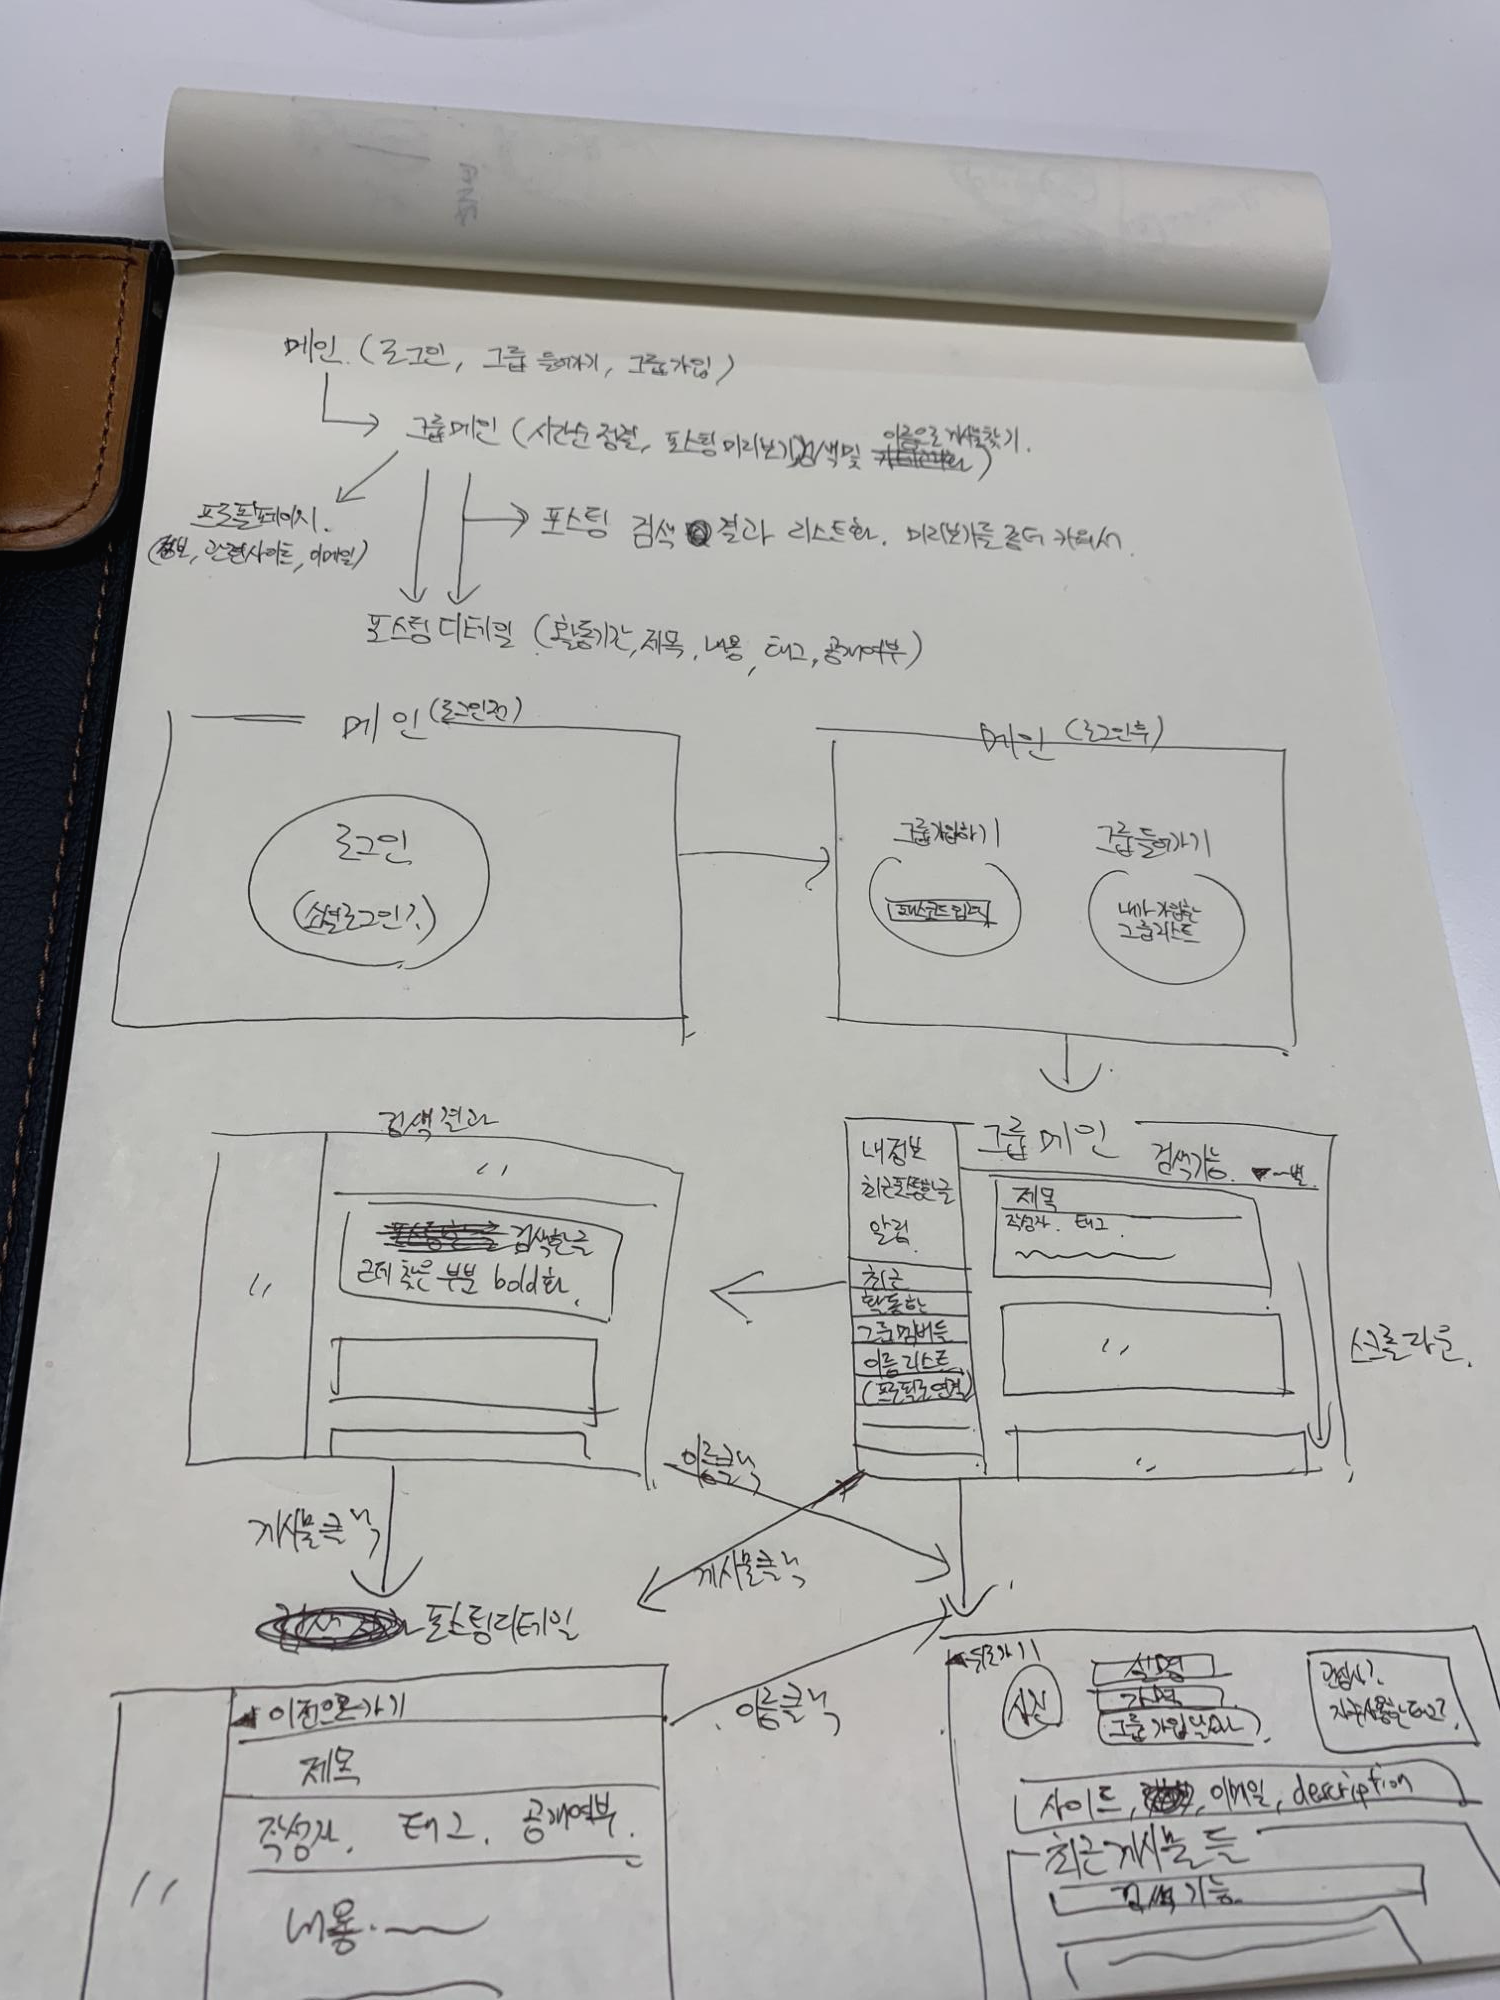 SNS
메인 (로그인, 그룹 들어가기, 그룹가입)
그룹메인 (시간순 정렬, 포스팅 미리보기, 검색 및 이름으로 게시물찾기.)
프로필페이지.
(정보, 관련사이트, 이메일)
포스팅 검색 결과 리스트화. 미리보기를 좀더 키워서.
포스팅 디테일 (활동기간, 제목, 내용, 태그, 공개여부)
메인 (로그인전)
로그인
(소셜로그인?)
메인 (로그인후)
그룹가입하기
패스코드 입력
그룹들어가기
내가 가입한
그룹리스트
검색결과
〃
검색한글
근데 찾은 부분 bold화.
〃
그룹메인
내정보
최근 포스팅한글
알림
최근
활동한
그룹멤버들
이름 리스트
(프로필로 연결)
검색기능.
제목
작성자. 태그
〃
〃
스크롤다운.
이름클릭
게시물클릭
게시물클릭
포스팅디테일
이전으로가기
제목
작성자. 태그. 공개여부.
〃
내용.
이름클릭
뒤로가기
사진
실명
가명
그룹 가입 날짜
관심사?
자주사용한태그?
사이트, 이메일, description
최근게시물들
검색기능.